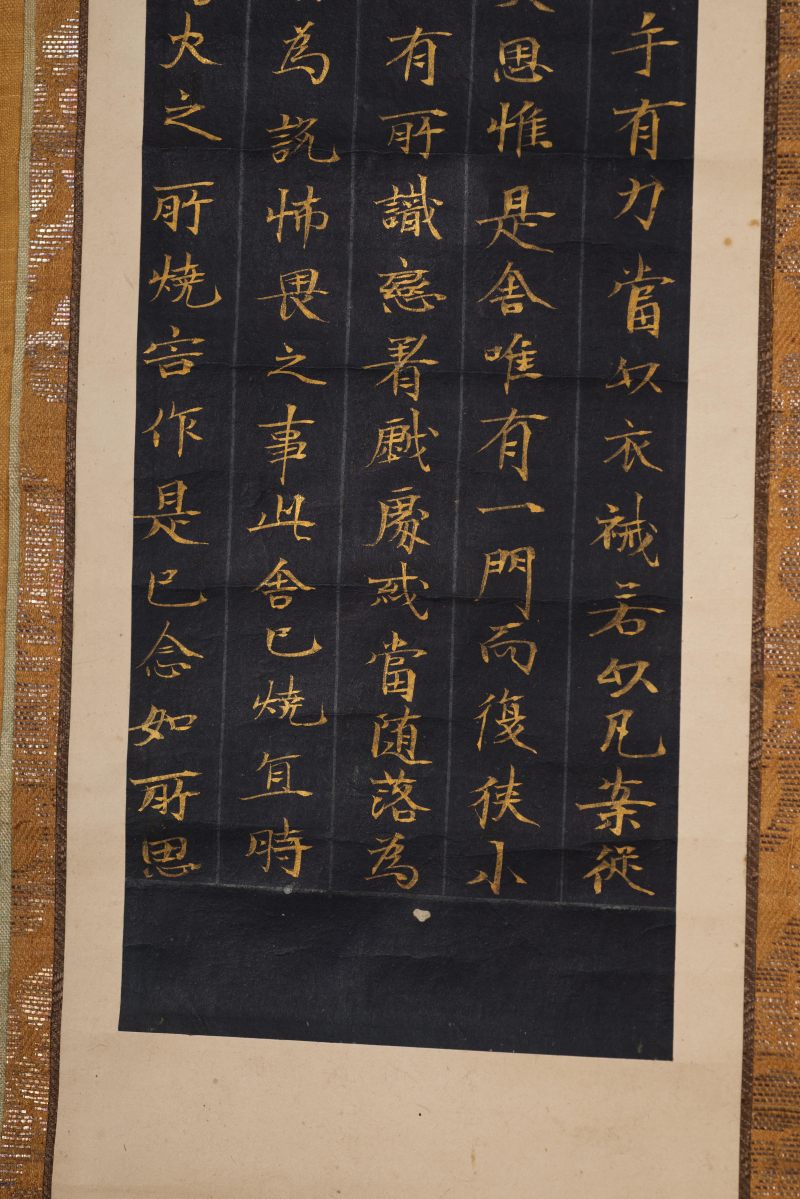 手有力當以衣裓若以几案從
思惟是舍唯有一門而復狭小
有所識戀着戲處或當随落為
為說怖畏之事此舍已燒宜時
火之所燒害作是已念如所思